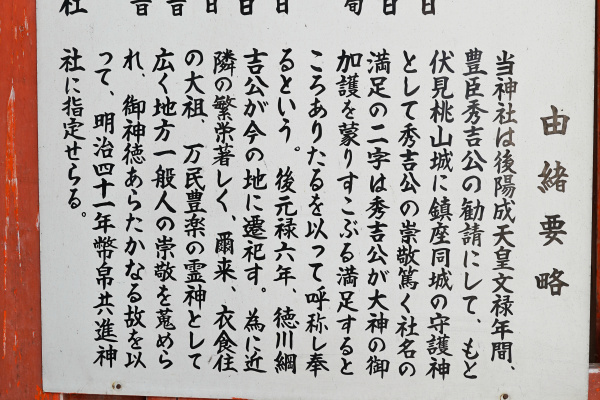 由緒要略
当神社は後陽成天皇文禄年間、
豊臣秀吉公の勧請にして、もと
伏見桃山城に鎮座同城の守護神
として秀吉公の崇敬篤く社名の
満足の二字は秀吉公が大神の御
加護を蒙りすこぶる満足すると
ころありたるを以って呼称し奉
るという。後元禄六年、徳川綱
吉公が今の地に遷祀す。為に近
隣の繁栄著しく、爾来、衣食住
の大祖、万民豊楽の霊神として
広く地方一般人の崇敬を蒐めら
れ、御神徳あらたかなる故を以
って、明治四十一年幣帛共進神
社に指定せらる。